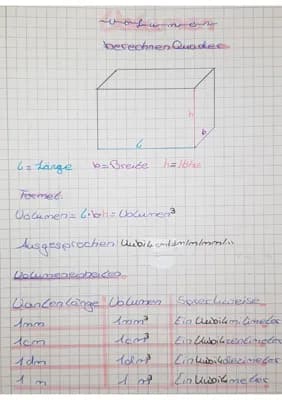 Volumen
berechnen Quader
h
b
l
l = Länge b = Breite h = Höhe
Formel:
Volumen = l·b·h = Volumen³
Ausgesprochen: Kubik cm/dm/m/mm/..
Volumeneinheiten
Kantenlänge Volumen Sprechweise
1mm 1mm³ Ein Kubikmilimeter
1cm 1cm³ Ein Kubikzentimeter
1dm 1dm³ Ein Kubikdezimeter
1 m 1 m³ Ein Kubikmeter